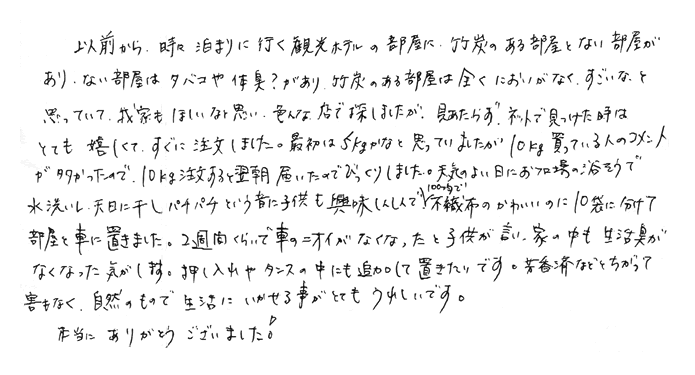 以前から、時々泊まりに行く観光ホテルの部屋に、竹炭のある部屋とない部屋が
あり、ない部屋はタバコや体臭？があり、竹炭のある部屋は全くにおいがなく、すごいなと
思っていて、我家もほしいなと思い、色んな店で探しましたが、見あたらず、ネットで見つけた時は
とても嬉しくて、すぐに注文しました。最初は5kgかなと思っていましたが10kg買っている人のコメント
が多かったので、10kg注文すると翌朝届いたのでびっくりしました。天気のよい日にお風呂場の浴そうで
水洗いし、天日に干しパチパチという音に子供も興味しんしんで、100均で不織布のかわいいのに10袋に分けて
部屋と車に置きました。2週間くらいで車のニオイがなくなったと子供が言い、家の中も生活臭が
なくなった気がします。押し入れやタンスの中にも追加して置きたいです。芳香済などとちがって
害もなく、自然のもので生活にいかせる事がとてもうれしいです。
本当にありがとうございました！